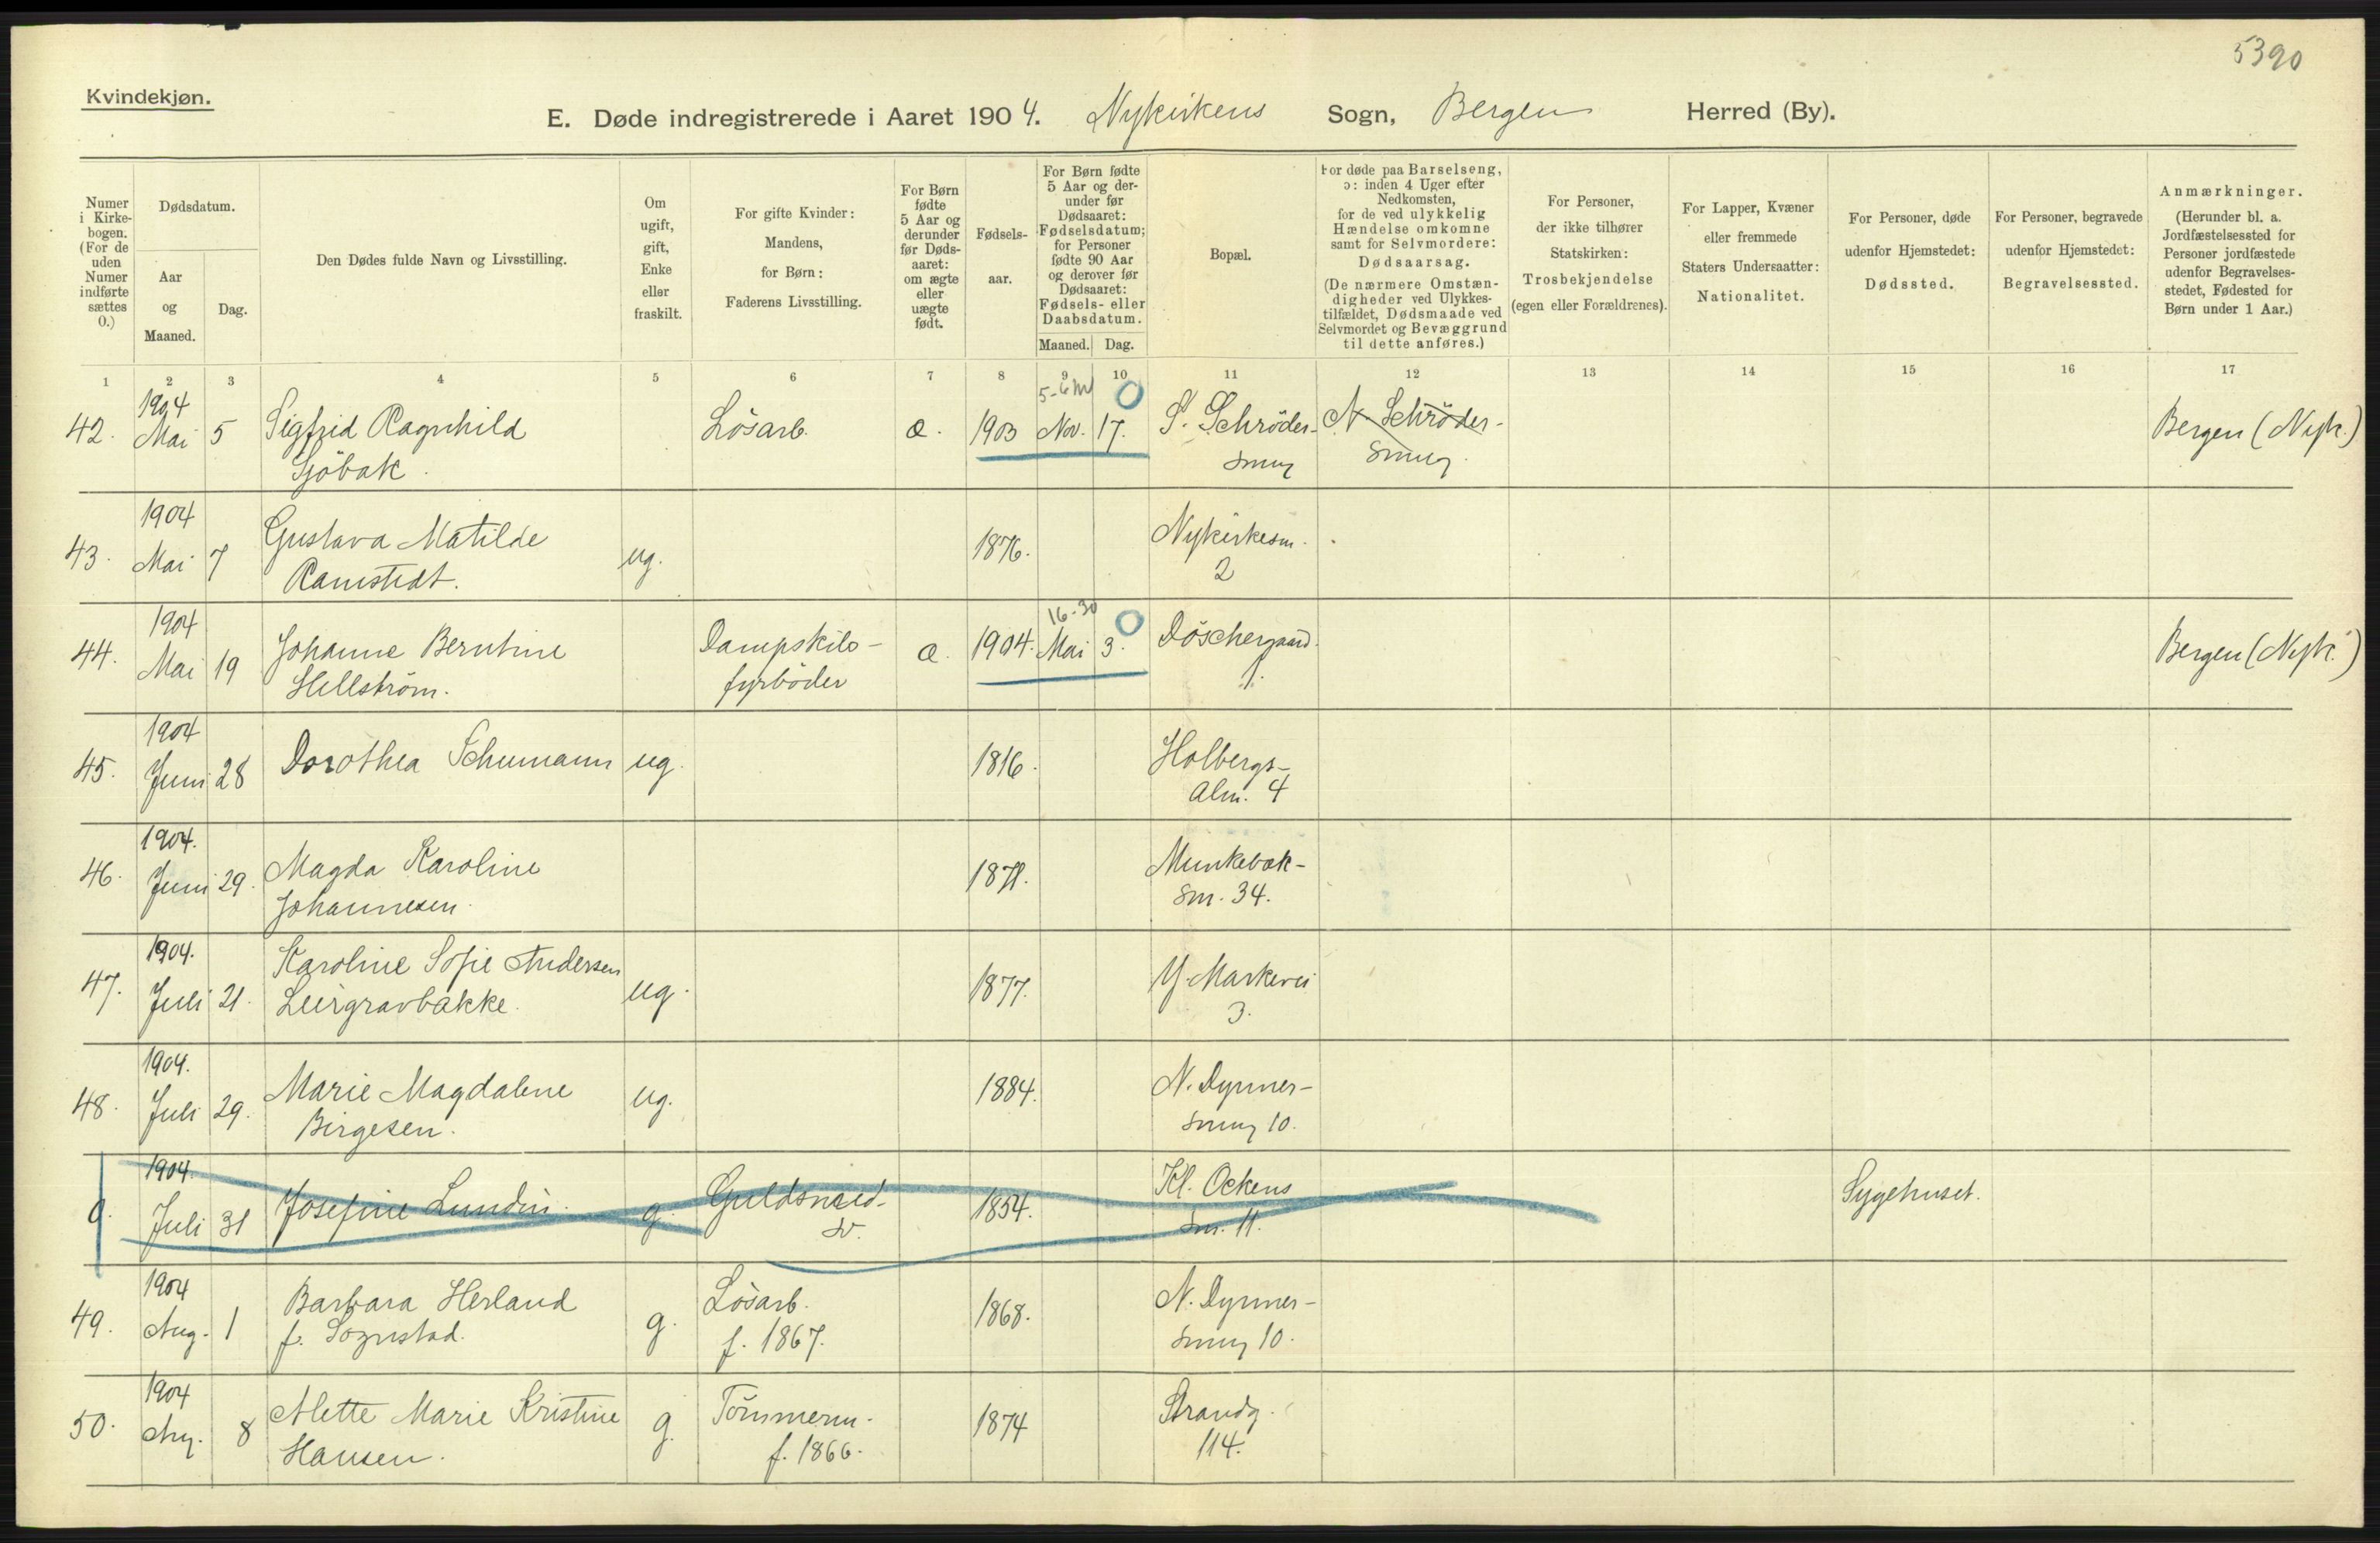 5390
Kvindekjøn.
E. Døde indregistrerede i Aaret 1904. Nykirkens Sogn, Bergen Herred (By).
Numer i Kirkebogen. (For de uden Numer indførte sættes 0.)
Dødsdatum.
Aar og Maaned.
Dag.
Den Dødes fulde Navn og Livsstilling.
Om ugift, gift, Enke eller fraskilt.
For gifte Kvinder: Mandens, for Børn: Faderens Livsstilling.
For Børn fødte 5 Aar og derunder før Dødsaaret: om ægte eller uægte født.
Fødselsaar.
For Børn fødte 5 Aar og derunder før Dødsaaret: Fødselsdatum; for Personer fødte 90 Aar og derover før Dødsaaret: Fødsels- eller Daabsdatum.
Maaned. Dag.
Bopæl.
For døde paa Barselseng, ɔ: inden 4 Uger efter Nedkomsten, for de ved ulykkelig Hændelse omkomne samt for Selvmordere: Dødsaarsag. (De nærmere Omstændigheder ved Ulykkestilfældet, Dødsmaade ved Selvmordet og Bevæggrund til dette anføres.)
For Personer, der ikke tilhører Statskirken: Trosbekjendelse (egen eller Forældrenes).
For Lapper, Kvæner eller fremmede Staters Undersaatter: Nationalitet.
For Personer, døde udenfor Hjemstedet: Dødssted.
For Personer, begravede udenfor Hjemstedet: Begravelsessted.
Anmærkninger. (Herunder bl. a. Jordfæstelsessted for Personer jordfæstede udenfor Begravelsesstedet, Fødested for Børn under 1 Aar.)
1 2 3 4 5 6 7 8 9 10 11 12 13 14 15 16 17
1904 5-6 M 0
42. Mai 5 Sigfrid Ragnhild Løsarb. æ. 1903 Nov. 17. S. Schrøder- N. Schrøder- Bergen (Nyk.)
Gjøbak. smug smug.
1904
43. Mai 7 Gustava Matilde ug. 1876. Nykirkesm.
Ramstedt. 2
1904 16-30 0
44. Mai 19 Johanne Berntine Dampskibs- æ. 1904. Mai 3. Døschergaard. Bergen (Nyk.)
Hellstrøm. fyrbøder 1.
1904
45. Juni 28 Dorothea Schumann ug. 1816. Holbergs-
Alm. 4
1904.
46. Juni 29. Magda Karoline Munkebæk-
Johannesen. sm. 34.
1904.
47. Juli 21. Karoline Sofie Andersen ug. 1877. Y. Markevei
Leirgravbakke. 3.
1904.
48. Juli 29. Marie Magdalene ug. 1884. N. Dynner-
Birgesen. smug 10.
1904.
Juli 31 Josefine Lundin. g. Guldsmed- 1854. Kl. Ockens Sygehuset.
sv. sm. 11.
1904
49. Aug. 1 Barbara Herland g. Løsarb. 1868. N. Dynner-
f. Sognstad. f. 1867. smug 10.
1904
50. Aug. 8 Alette Marie Kristine g. Tømmerm. 1874 Strandg.
Hansen. f. 1866. 114.